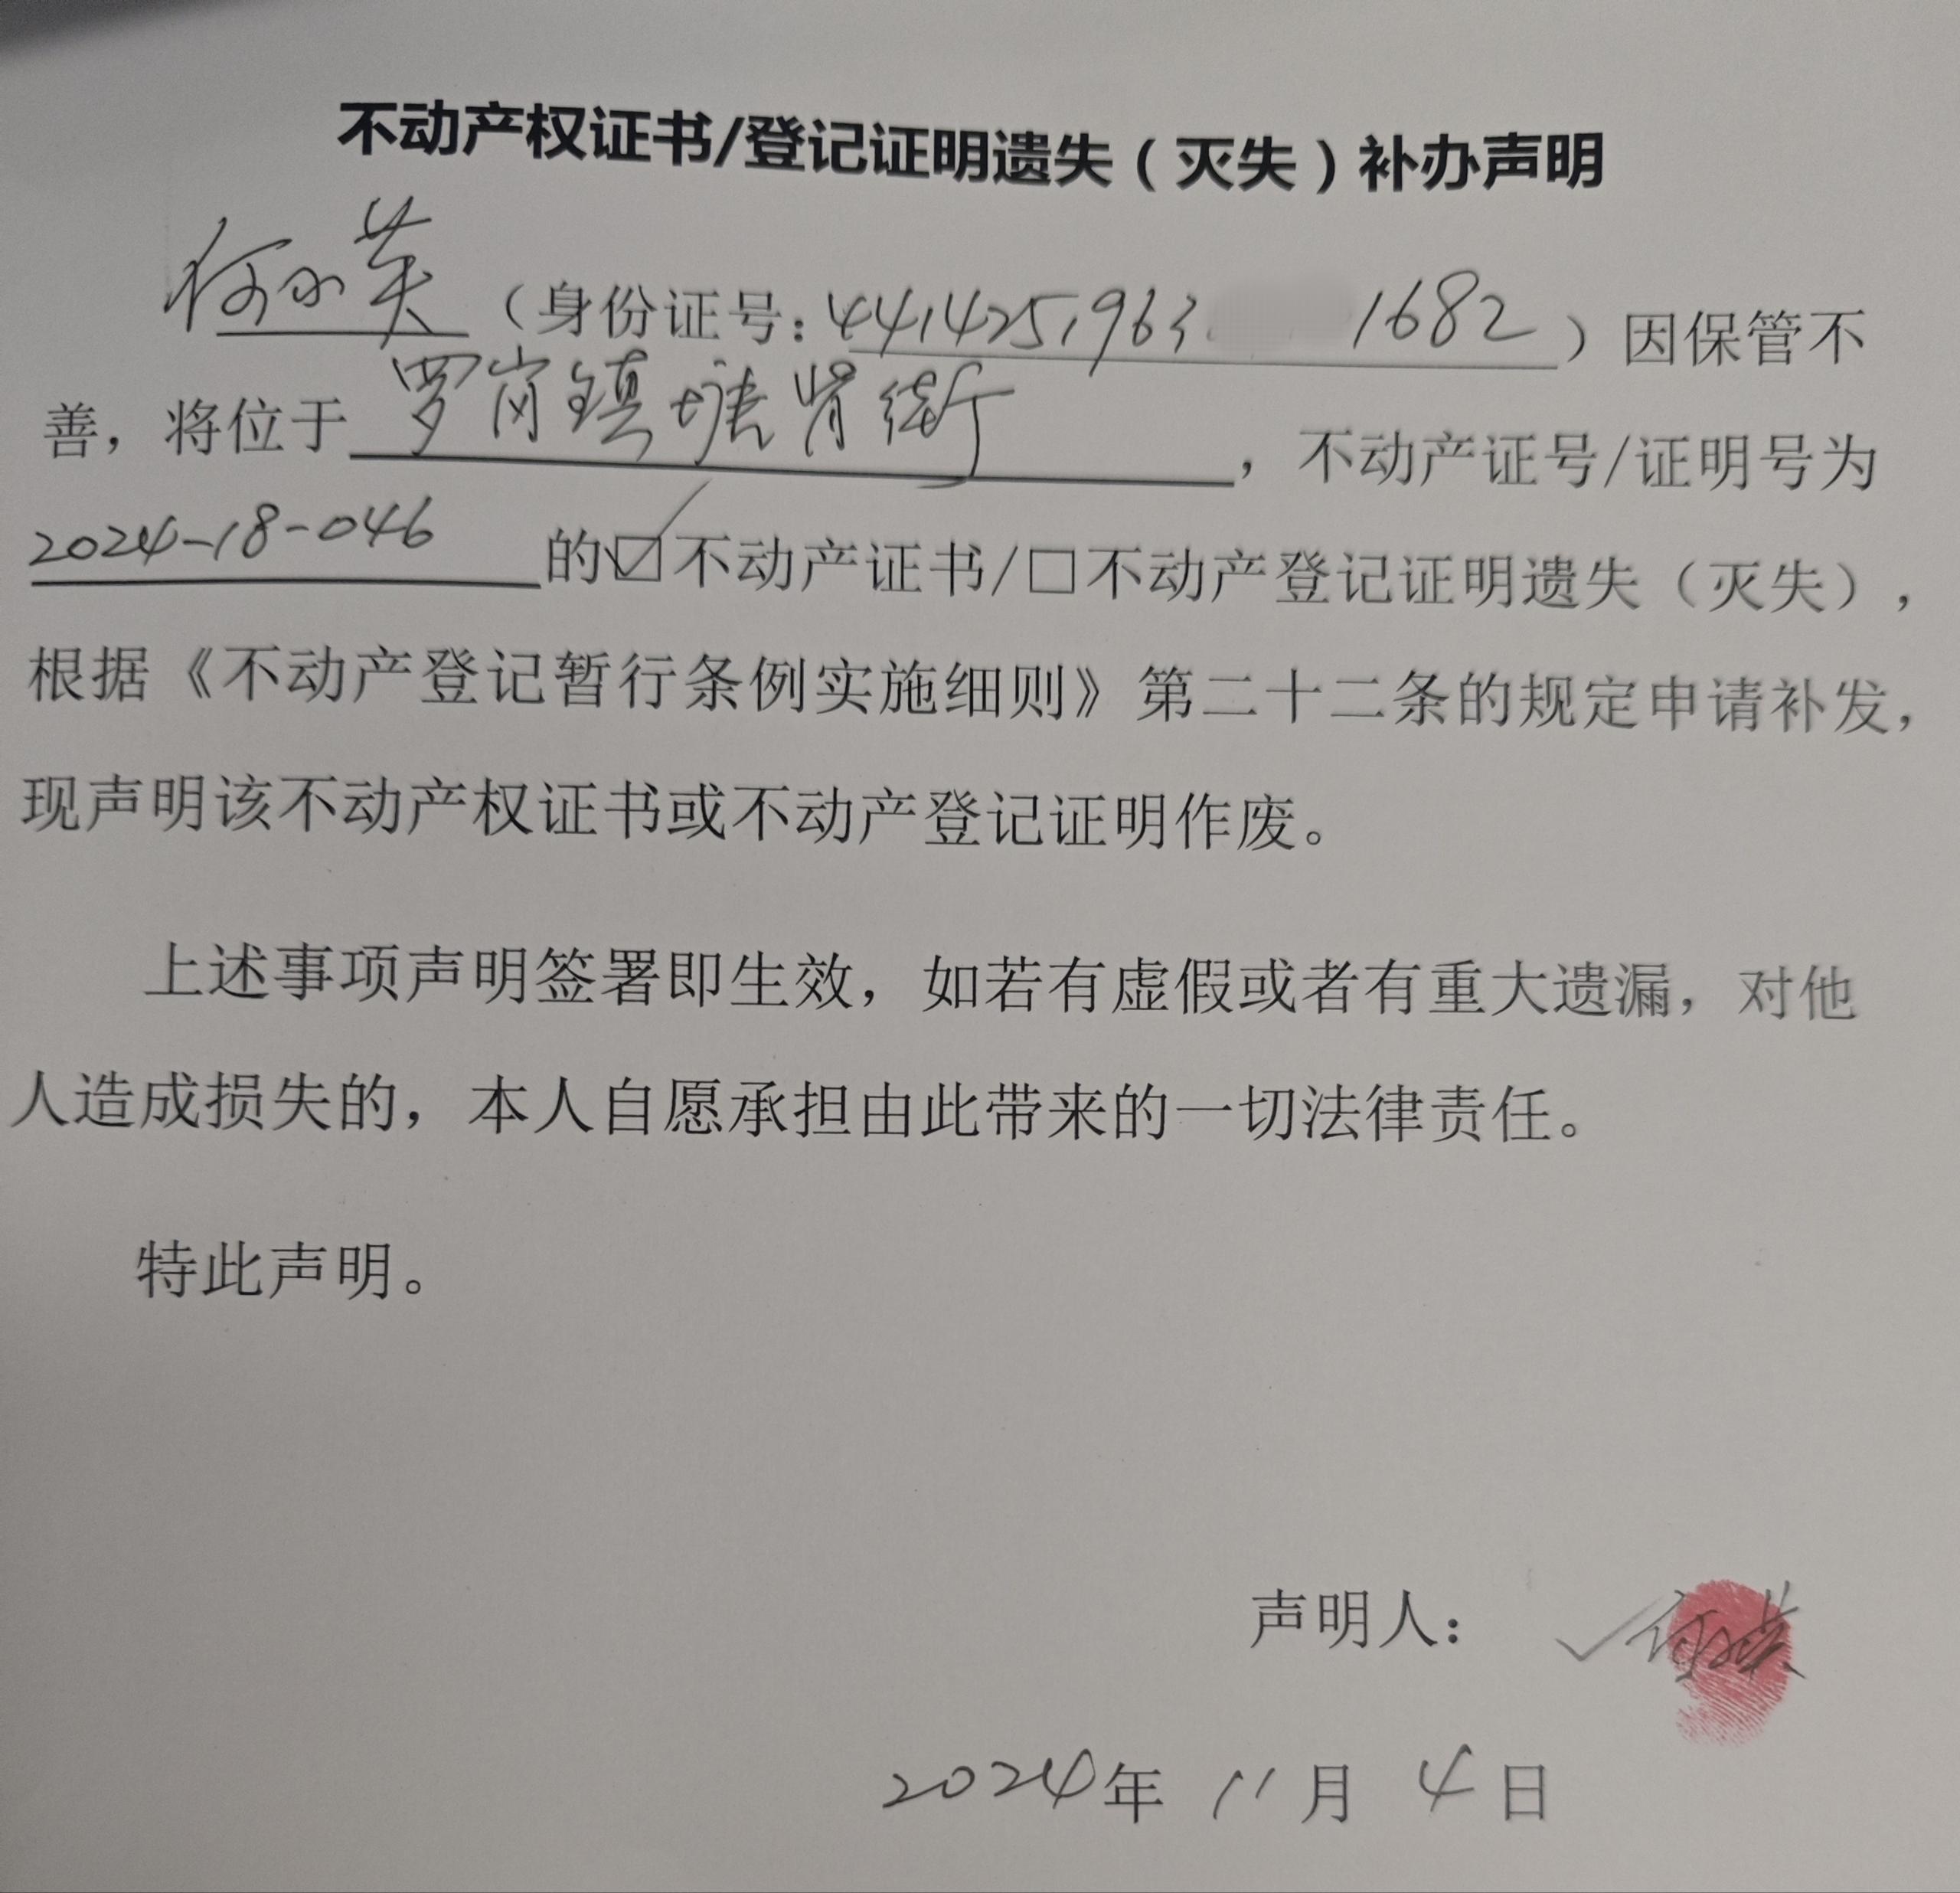 不动产权证书/登记证明遗失（灭失）补办声明
何小英（身份证号：4414251963 1682）因保管不
善，将位于罗岗镇塘背街，不动产证号/证明号为
2024-18-046的☑不动产证书/□不动产登记证明遗失（灭失），
根据《不动产登记暂行条例实施细则》第二十二条的规定申请补发，
现声明该不动产权证书或不动产登记证明作废。
上述事项声明签署即生效，如若有虚假或者有重大遗漏，对他
人造成损失的，本人自愿承担由此带来的一切法律责任。
特此声明。
声明人：✓何小英
2024年11月4日